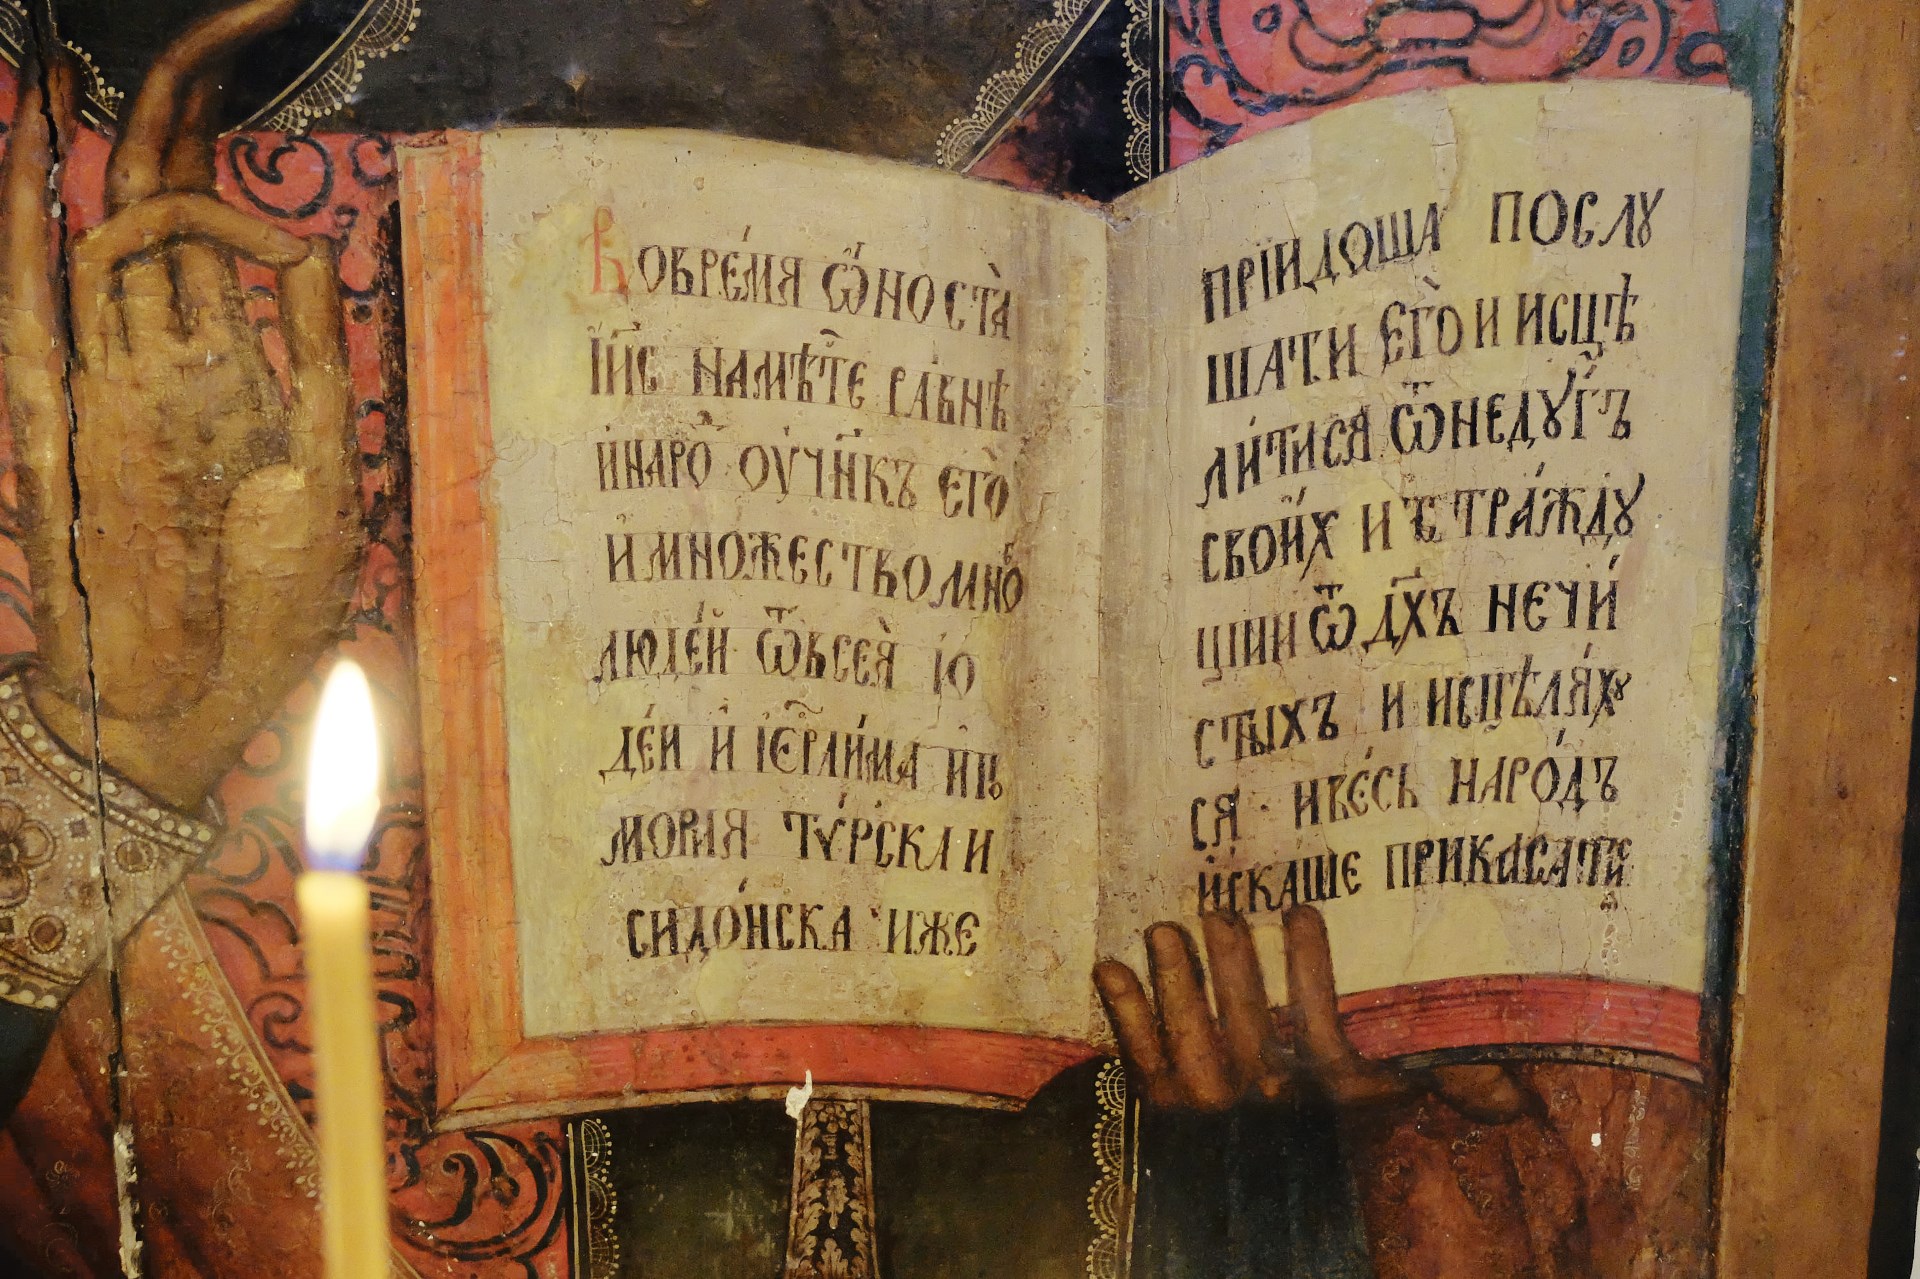 Вовре́мя ѻ́но ста̀
І҆и҃с намѣ́сте ра́внѣ
и҆наро́ ѹ҆чн҃къ егѡ̀
и҆множество мно́
люде́й ѿвсея̀ іо
де́и и҆ іе҆рли́ма и҆пⷬ
морїѧ тѵ́рска и
сидо́нска иже
прїидоша послꙋ
шати его̀ и исцѣ
ли́тисѧ ѿнедꙋ́гъ
свои́х и стра́ждꙋ
щїи ѿ дх҃ъ нечи́
стыхъ и исцѣлѧ́хꙋ
сѧ̀ · иве́сь наро́дъ
и҆ска́ше прикасати